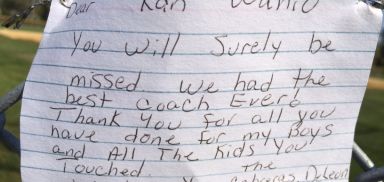 Dear Kan
You will Surely be
missed. We had the
best coach Ever!
Thank You for all you
have done for my Boys
and All The kids You
Touched. The
Deleon